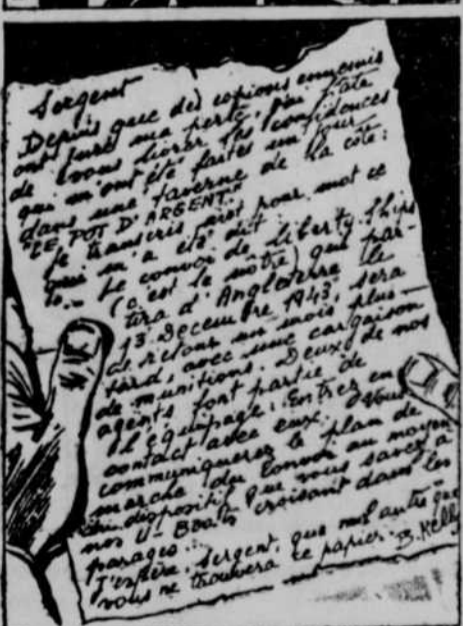 Sergent
Depuis que des espions ennemis
ont juré ma perte, j'ai hâte
de vous livrer les confidences
qui m'ont été faites un jour
dans une taverne de la côte:
"LE POT D'ARGENT."
Je transcris mot pour mot ce
qui m'a été dit:
"Le convoi de liberty ships
(c'est le nôtre) qui par-
tira d'Angleterre le
13 Décembre 1943, sera
de retour un mois plus
tard, avec une cargaison
de munitions. Deux de nos
agents font partie de
l'équipage: Entrez en
contact avec eux. Vous
communiquerez le plan de
marche du convoi au moyen
du dispositif que vous savez à
nos U-Boats croisant dans les
parages...
J'espère, sergent, que nul autre que
vous ne trouvera ce papier - B. Kelly